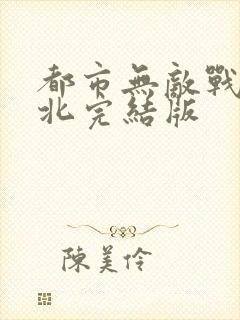 都市無敵戰
北完結版
陳美伶